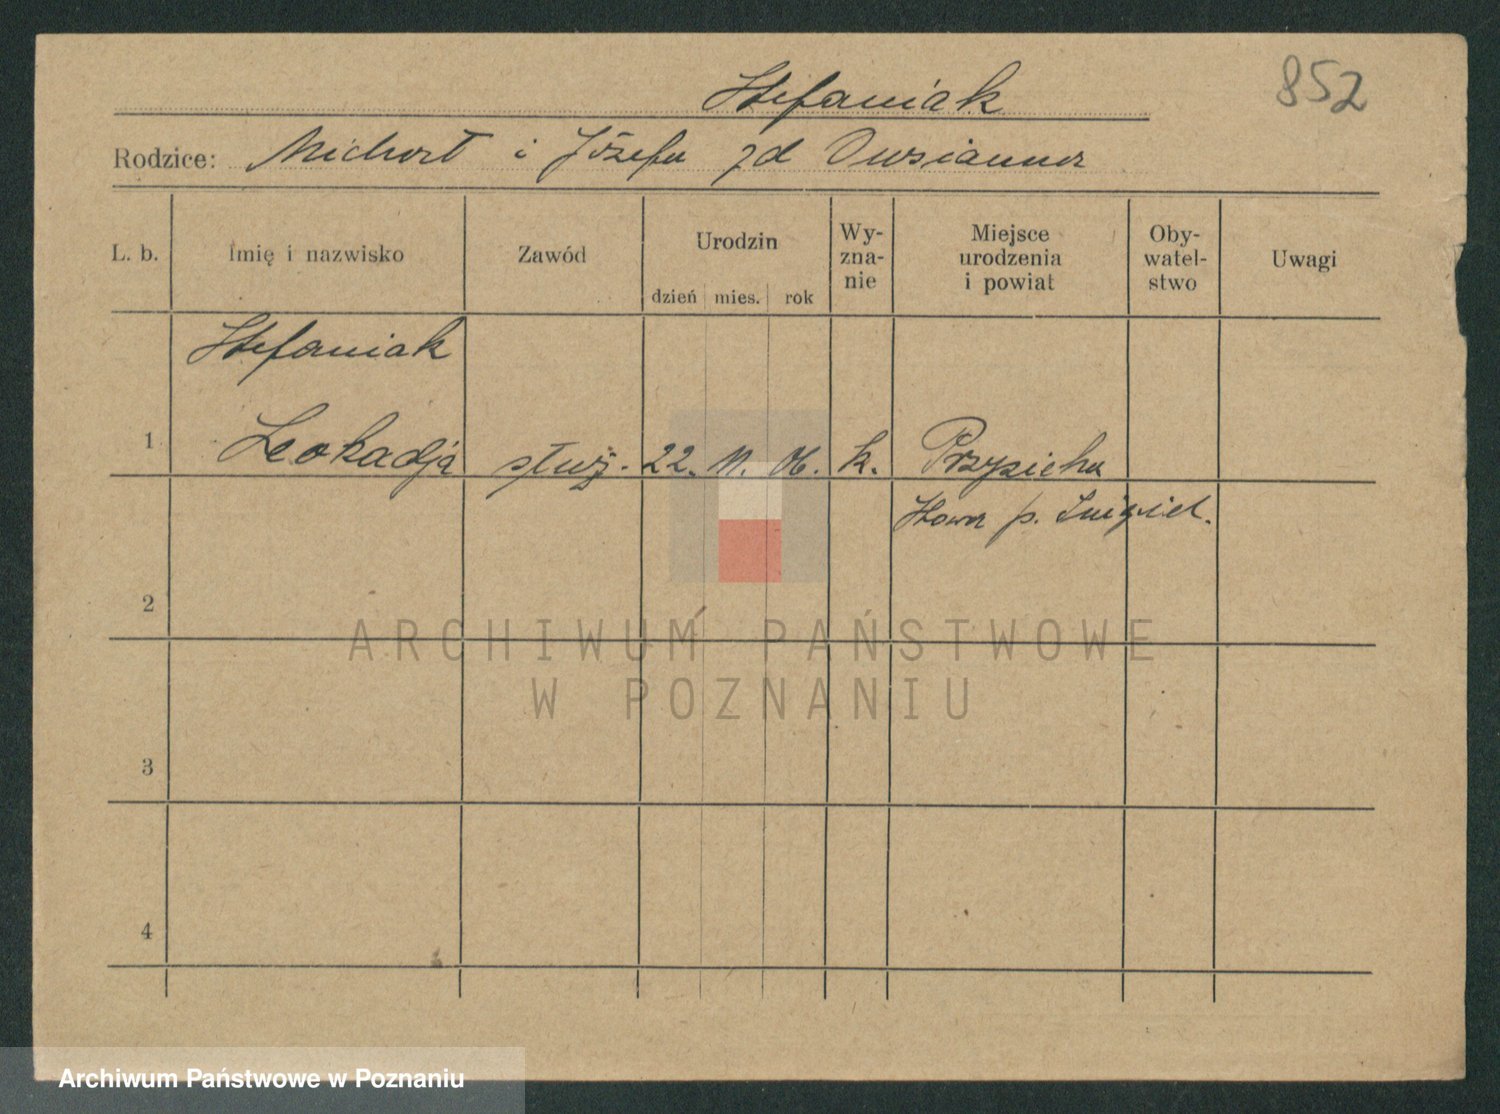 852
Stefaniak
Rodzice: Michał i Józefa zd Owsianna
L. b. Imię i nazwisko Zawód Urodzin dzień mies. rok Wy- zna- nie Miejsce urodzenia i powiat Oby- watel- stwo Uwagi
Stefaniak
1 Leokadja służ. 22. 11. 06. k. Przysieka
Stara p. Śmigiel.
2
3
4
ARCHIWUM PAŃSTWOWE
W POZNANIU
Archiwum Państwowe w Poznaniu